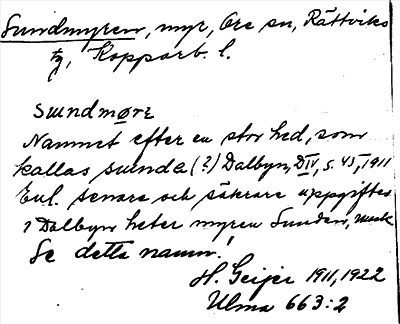 Sundmyren, myr, Ore sn, Rättviks
tg, Kopparb. l.
sωndmørɛ
Namnet efter en stor hed, som
kallas sωnda (?) Dalbyn, D IV, s. 45, 1911
Enl. senare och säkrare uppgifter
i Dalbyn heter myren Sunden, mask
Se detta namn!
H. Geijer 1911, 1922
Ulma 663:2